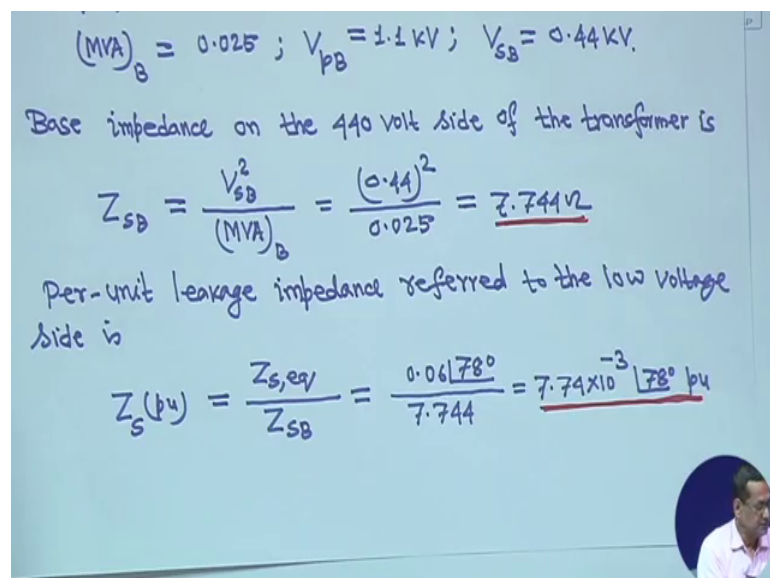 (MVA)_B = 0.025 ; V_pB = 1.1 KV ; V_SB = 0.44 KV.
Base impedance on the 440 volt side of the transformer is
Z_SB = V_SB^2 / (MVA)_B = (0.44)^2 / 0.025 = 7.744 Ω
Per-unit leakage impedance referred to the low voltage
side is
Z_S(pu) = Z_S,eq / Z_SB = 0.06∠78° / 7.744 = 7.74×10^-3 ∠78° pu